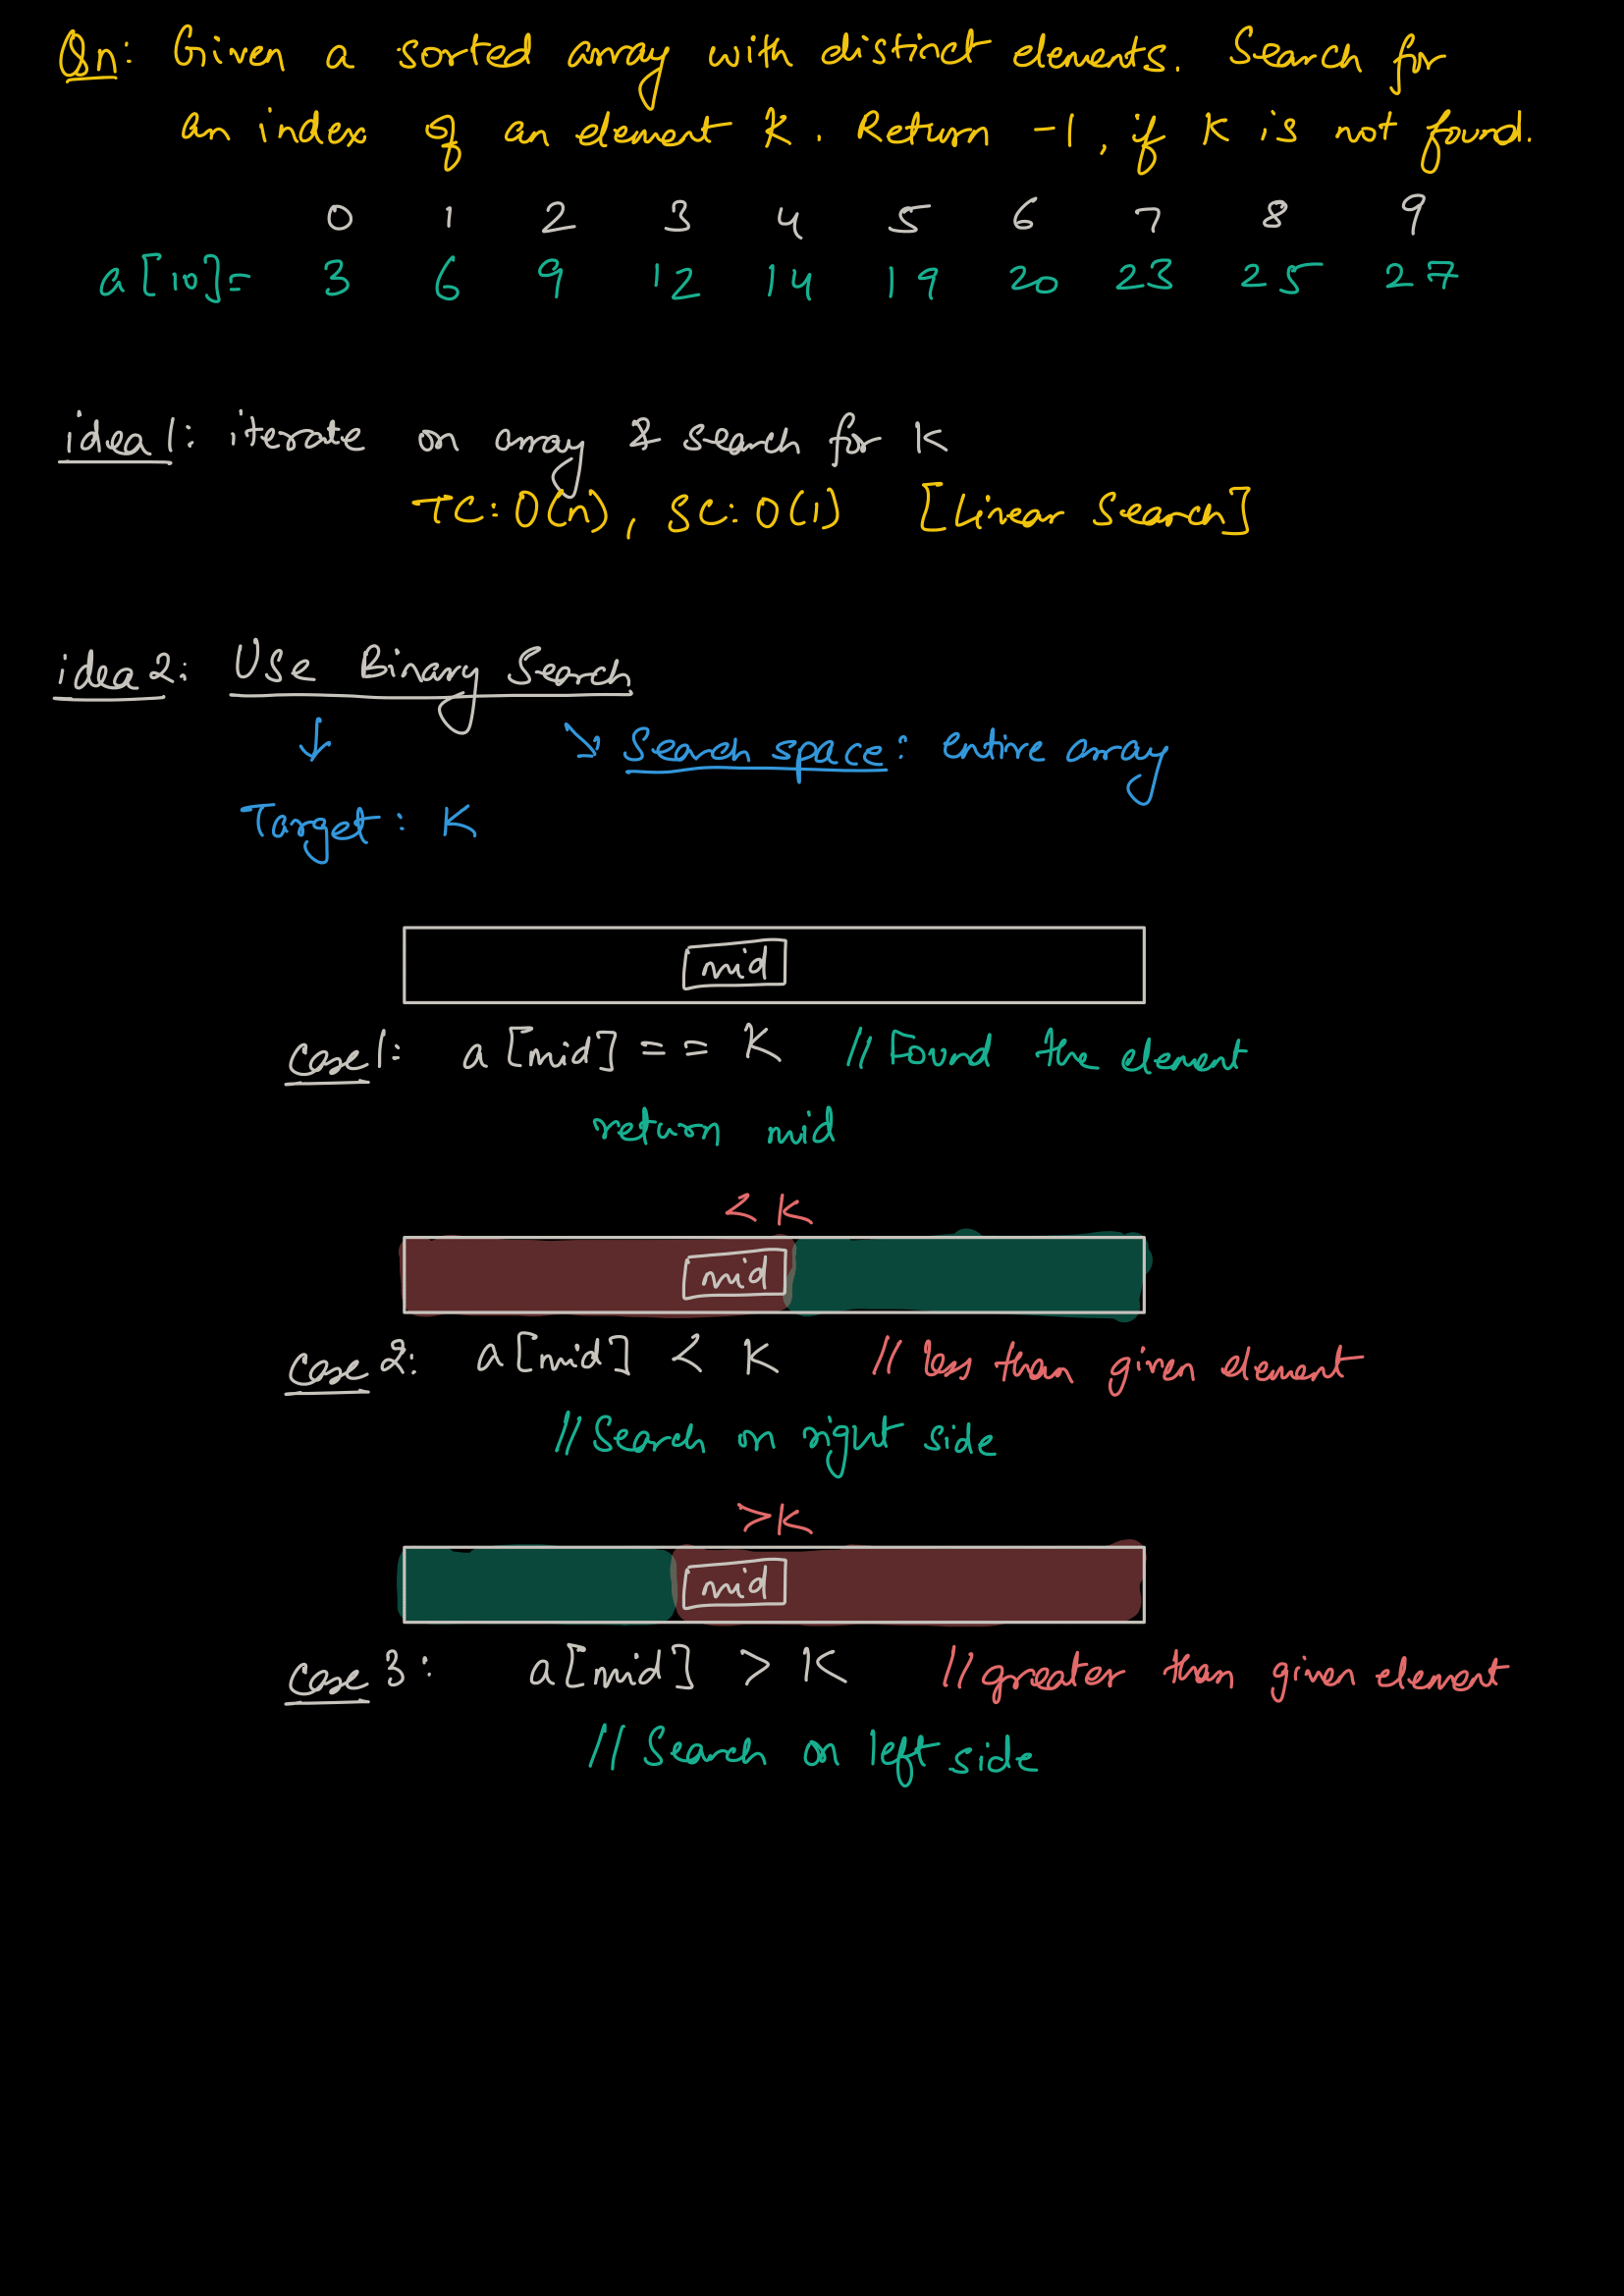 Qn: Given a sorted array with distinct elements. Search for
an index of an element K. Return -1, if K is not found.
0 1 2 3 4 5 6 7 8 9
a[10]= 3 6 9 12 14 19 20 23 25 27
idea 1: iterate on array & search for K
TC: O(n), SC: O(1) [Linear Search]
idea 2: Use Binary Search
↓ ↘ Search space: entire array
Target: K
mid
case 1: a[mid] == K // Found the element
return mid
< K
mid
case 2: a[mid] < K // less than given element
// Search on right side
>K
mid
case 3: a[mid] > K // greater than given element
// Search on left side